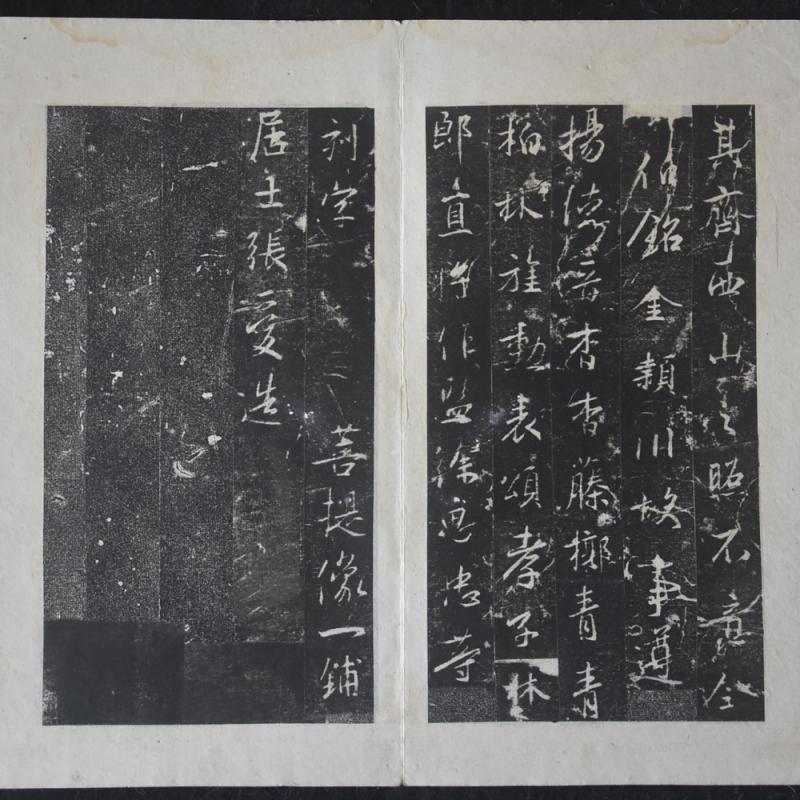 其齊曲山之照不
銘金潁川故事遵
揚德音杳杳藤槨青青
柏林旌勳表頌孝子林
郎直將作監徐思忠等
刻字 菩提像一鋪
居士張愛造